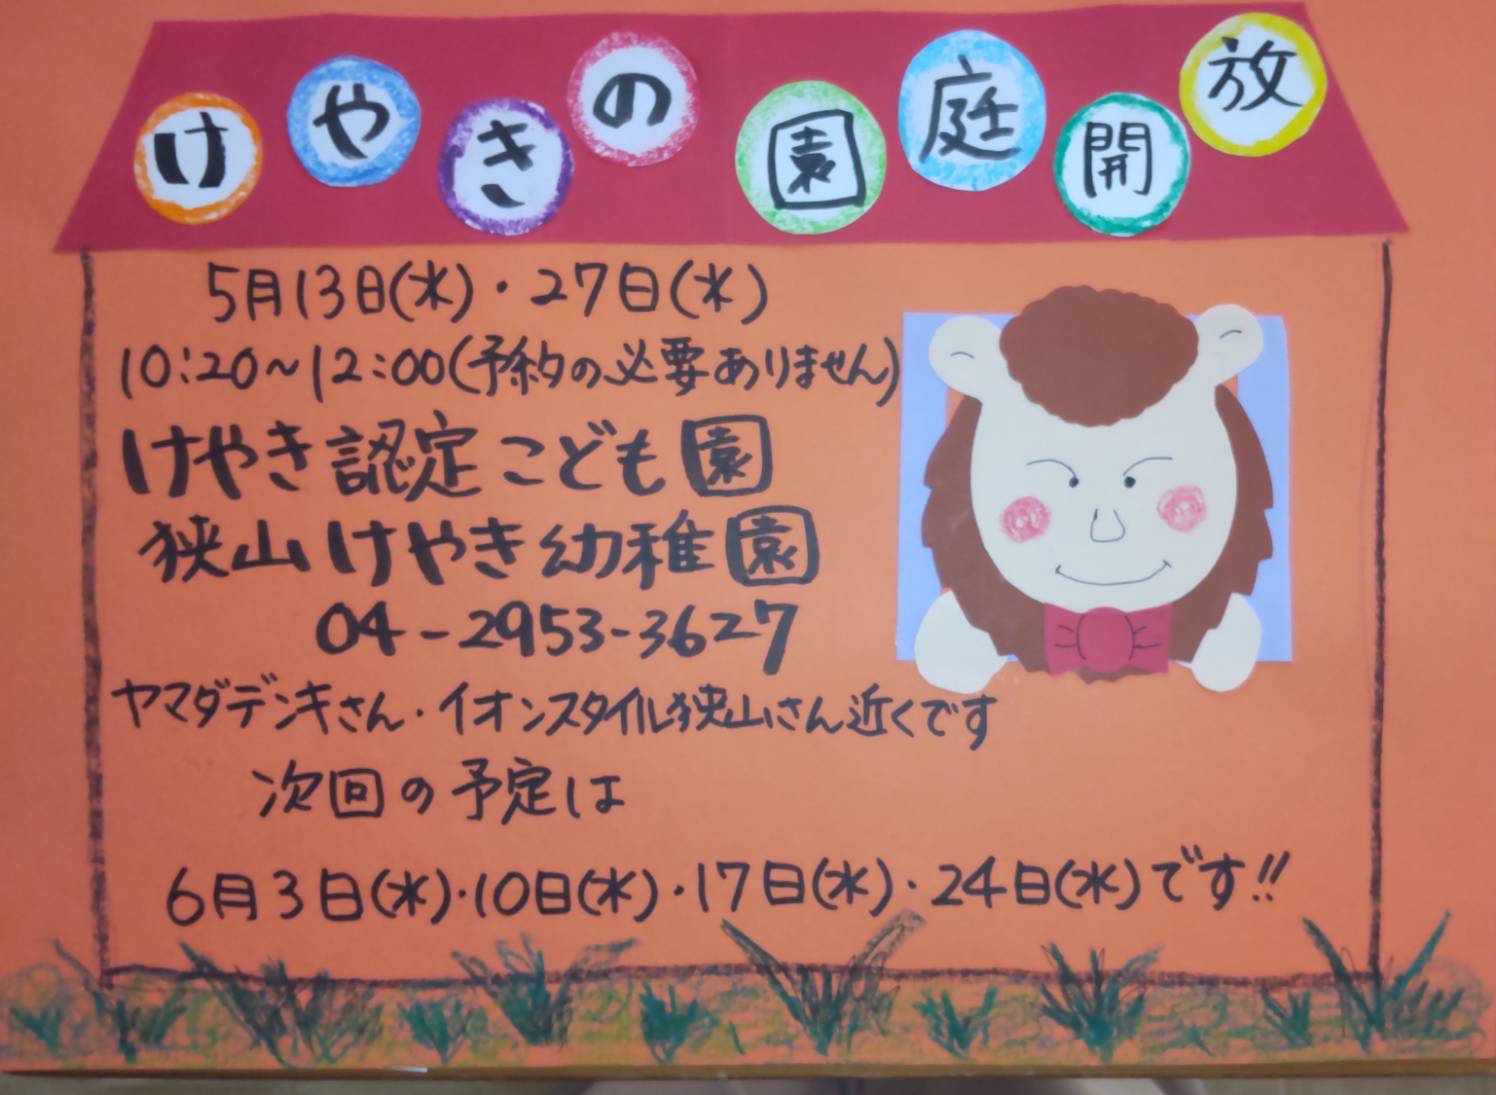 けやきの園庭開放
5月13日(水)・27日(水)
10:20～12:00(予約の必要ありません)
けやき認定こども園
狭山けやき幼稚園
04-2953-3627
ヤマダデンキさん・イオンスタイル狭山さん近くです
次回の予定は
6月3日(水)・10日(水)・17日(水)・24日(水)です!!